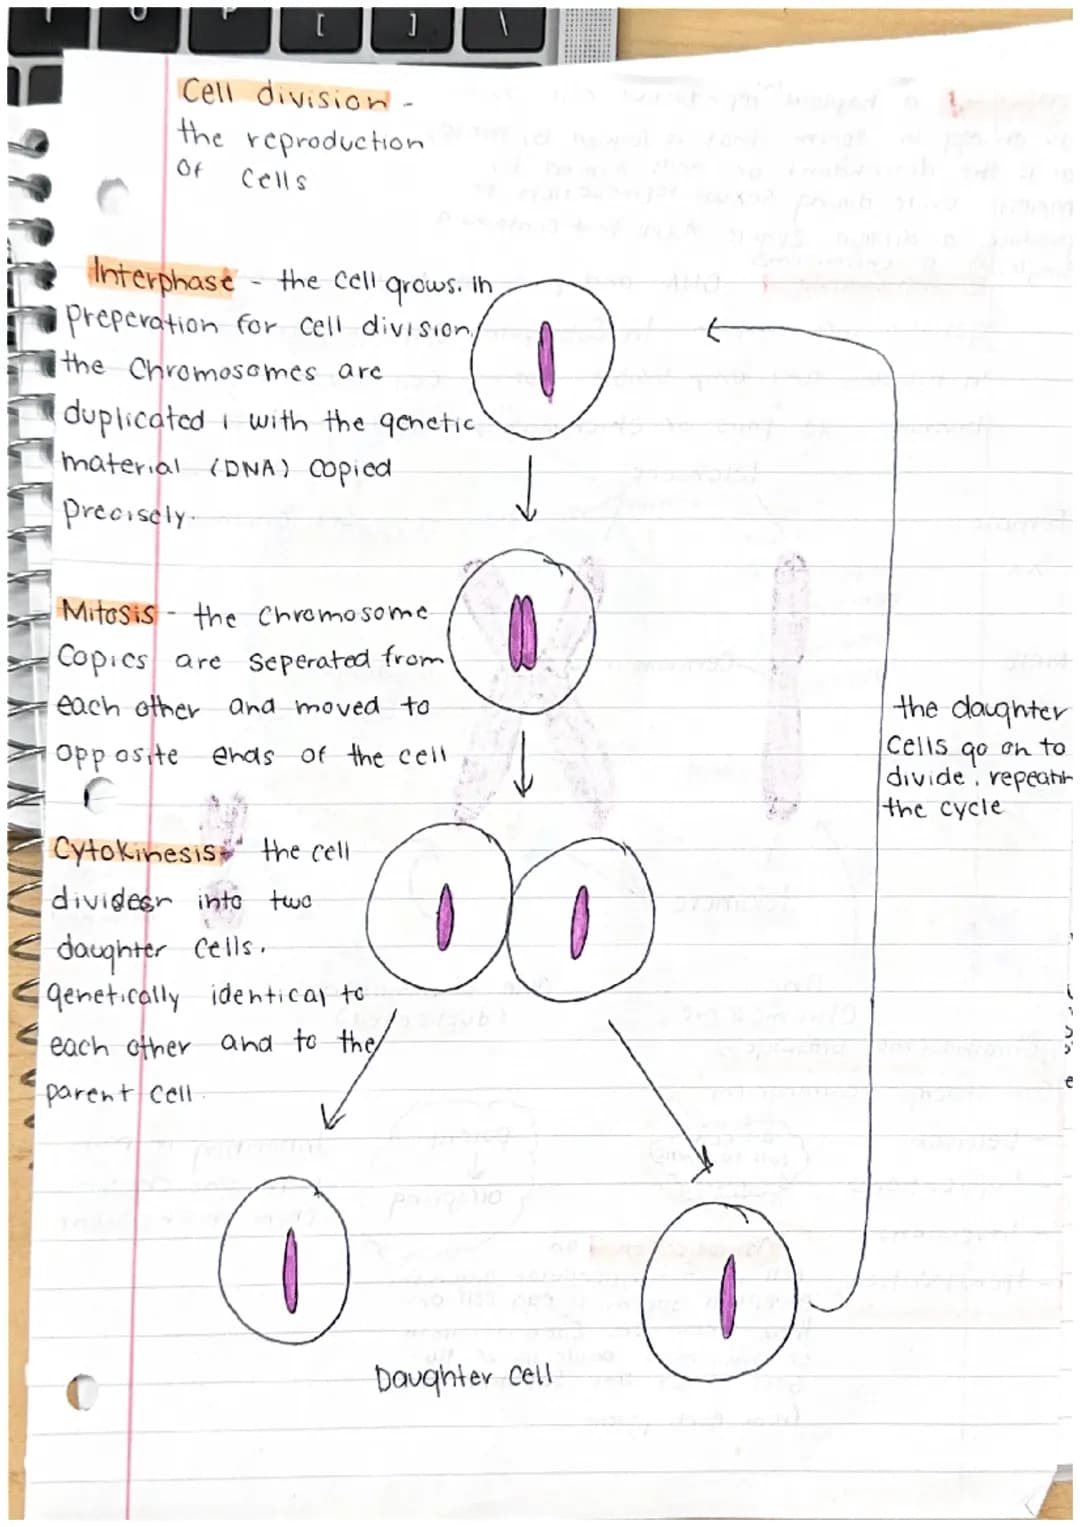 Cell division -
the reproduction
Of Cells
Interphase - the cell grows. in
preperation for cell division,
the Chromosomes are
duplicated , with the genetic
material (DNA) copied
precisely.
Mitosis - the Chromosome
Copies are seperated from
each other and moved to
opposite ends of the cell
the daughter
cells go on to
divide, repeatin
the cycle
Cytokinesis - the cell
divides into two
daughter cells.
genetically identical to
each other and to the
parent cell.
Daughter cell